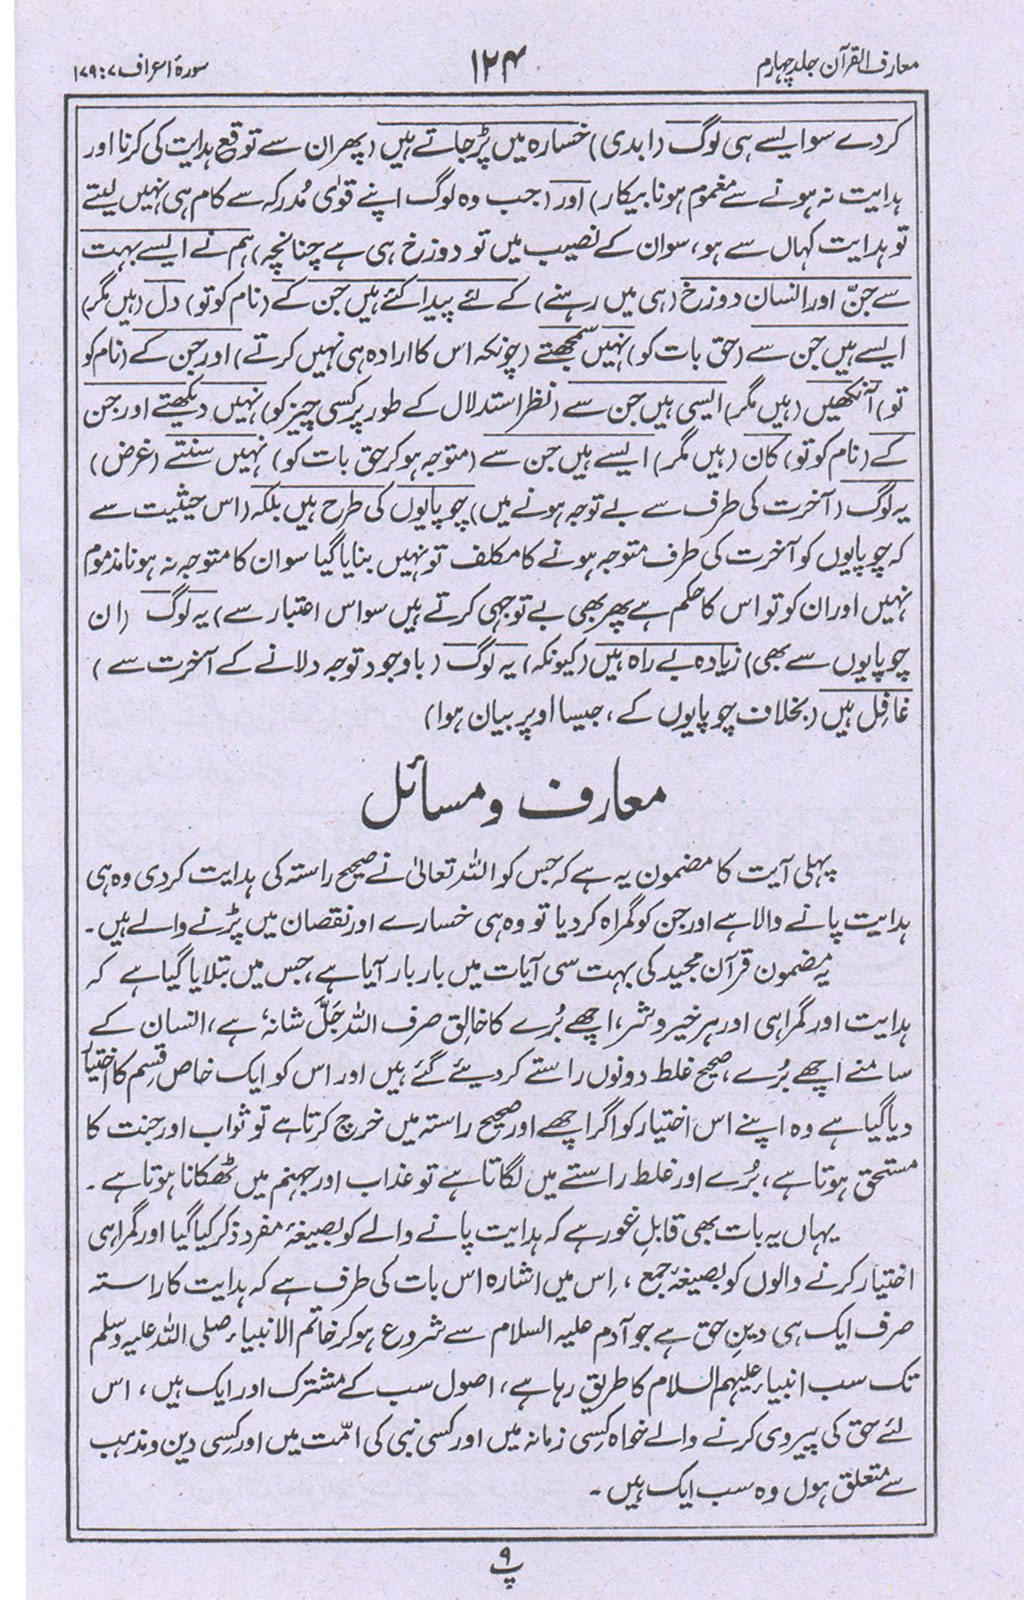 معارف القرآن جلد چہارم
۱۲۴
سورۂ اعراف ۷: ۱۷۹
کردے سو ایسے ہی لوگ (ابدی) خسارہ میں پڑ جاتے ہیں (پھر ان سے توقع ہدایت کی کرنا اور
ہدایت نہ ہونے سے مغموم ہونا بیکار) اور (جب وہ لوگ اپنے قوٰی مُدرکہ سے کام ہی نہیں لیتے
تو ہدایت کہاں سے ہو، سو ان کے نصیب میں تو دوزخ ہی ہے چنانچہ) ہم نے ایسے بہت
سے جنّ اور انسان دوزخ (ہی میں رہنے) کے لئے پیدا کئے ہیں جن کے (نام کو تو) دل (ہیں مگر)
ایسے ہیں جن سے (حق بات کو) نہیں سمجھتے (چونکہ اس کا ارادہ ہی نہیں کرتے) اور جن کے (نام کو
تو) آنکھیں (ہیں مگر) ایسی ہیں جن سے (نظر استدلال کے طور پر کسی چیز کو) نہیں دیکھتے اور جن
کے (نام کو تو) کان (ہیں مگر) ایسے ہیں جن سے (متوجہ ہو کر حق بات کو) نہیں سنتے (غرض)
یہ لوگ (آخرت کی طرف سے بے توجہ ہونے میں) چوپایوں کی طرح ہیں بلکہ (اس حیثیت سے
کہ چوپایوں کو آخرت کی طرف متوجہ ہونے کا مکلف تو نہیں بنایا گیا سو ان کا متوجہ نہ ہونا مذموم
نہیں اور ان کو تو اس کا حکم ہے پھر بھی بے توجہی کرتے ہیں سو اس اعتبار سے) یہ لوگ (ان
چوپایوں سے بھی) زیادہ بے راہ ہیں (کیونکہ) یہ لوگ (باوجود توجہ دلانے کے آخرت سے)
غافل ہیں (بخلاف چوپایوں کے، جیسا اوپر بیان ہوا)
معارف و مسائل
پہلی آیت کا مضمون یہ ہے کہ جس کو اللہ تعالیٰ نے صحیح راستہ کی ہدایت کردی وہ ہی
ہدایت پانے والا ہے اور جن کو گمراہ کر دیا تو وہ ہی خسارے اور نقصان میں پڑنے والے ہیں۔
یہ مضمون قرآن مجید کی بہت سی آیات میں بار بار آیا ہے، جس میں بتلایا گیا ہے کہ
ہدایت اور گمراہی اور ہر خیر و شر، اچھے بُرے کا خالق صرف اللہ جَلّ شانہٗ ہے، انسان کے
سامنے اچھے بُرے، صحیح غلط دونوں راستے کر دیئے گئے ہیں اور اس کو ایک خاص قسم کا اختیار
دیا گیا ہے وہ اپنے اس اختیار کو اگر اچھے اور صحیح راستہ میں خرچ کرتا ہے تو ثواب اور جنت کا
مستحق ہوتا ہے، بُرے اور غلط راستے میں لگاتا ہے تو عذاب اور جہنم میں ٹھکانا ہوتا ہے۔
یہاں یہ بات بھی قابلِ غور ہے کہ ہدایت پانے والے کو بصیغۂ مفرد ذکر کیا گیا اور گمراہی
اختیار کرنے والوں کو بصیغۂ جمع، اِس میں اشارہ اس بات کی طرف ہے کہ ہدایت کا راستہ
صرف ایک ہی دینِ حق ہے جو آدم علیہ السلام سے شروع ہو کر خاتم الانبیاء صلی اللہ علیہ وسلم
تک سب انبیاء علیہم السلام کا طریق رہا ہے، اصول سب کے مشترک اور ایک ہیں، اس
لئے حق کی پیروی کرنے والے خواہ کسی زمانہ میں اور کسی نبی کی امّت میں اور کسی دین و مذہب
سے متعلق ہوں وہ سب ایک ہیں۔
پ ۹